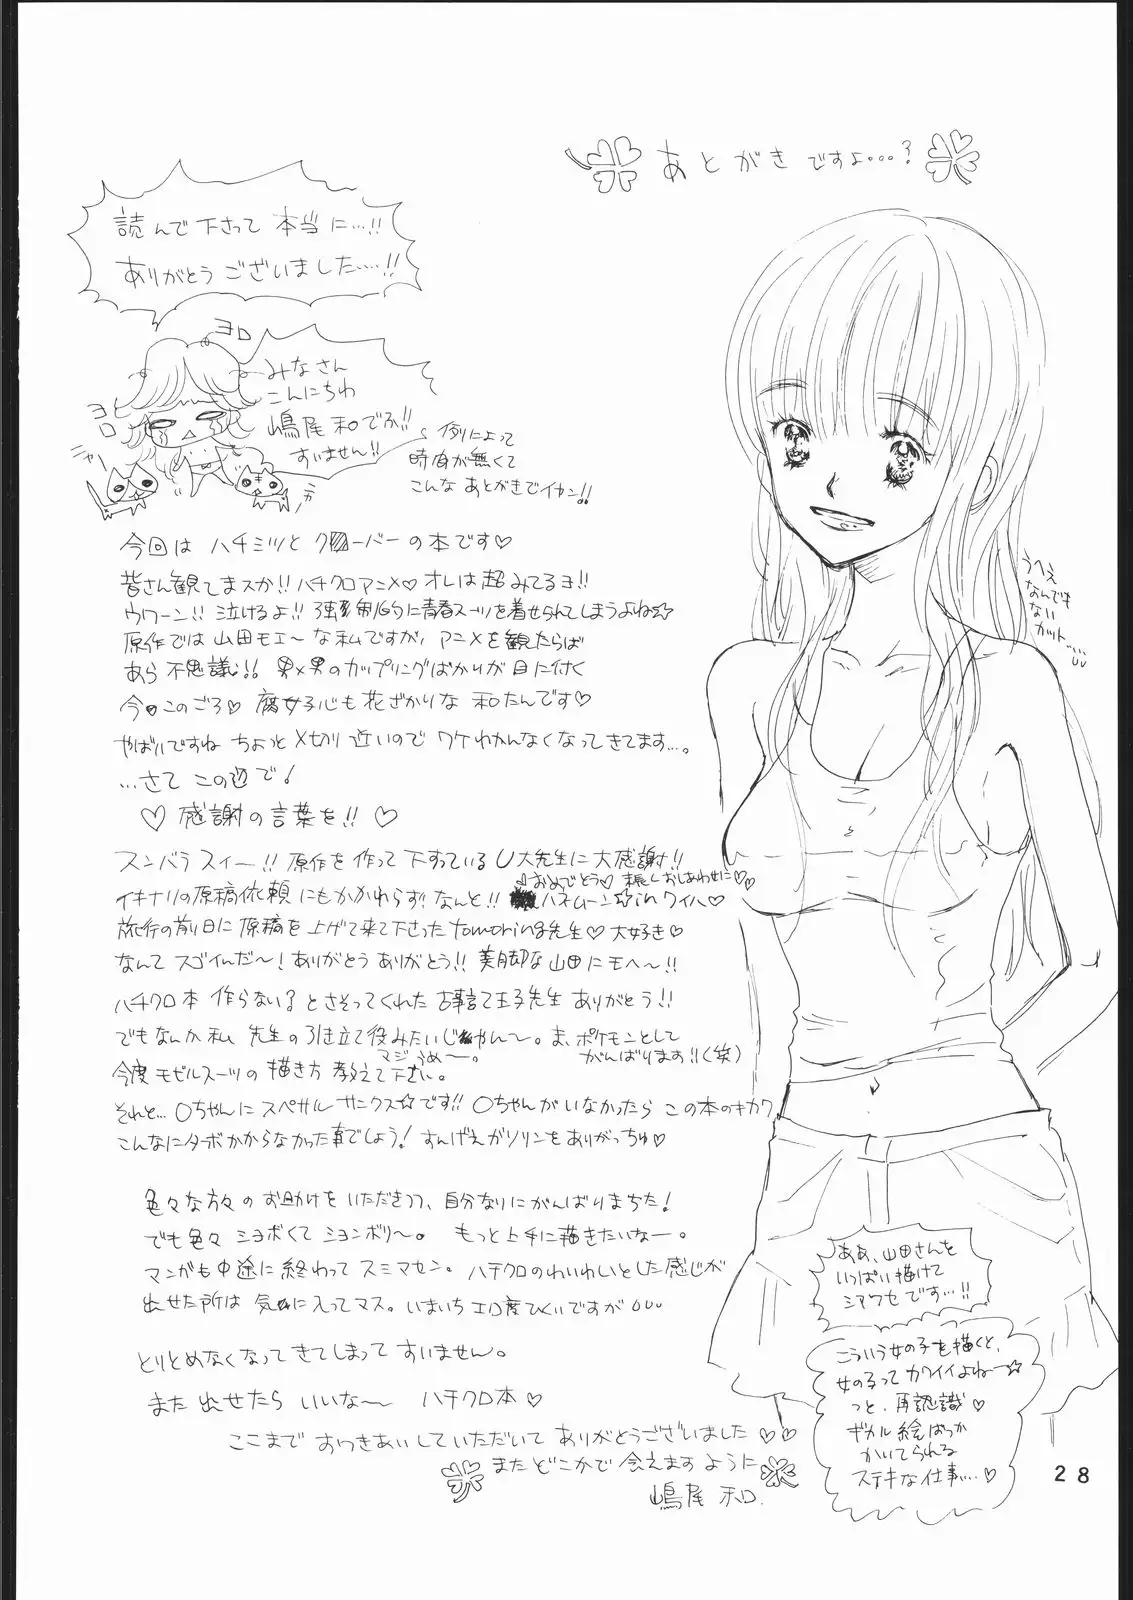 あとがきですよ…?
読んで下さって本当に…!!
ありがとうございました…!!
ヨロ
ヨロ
ニャー
みなさん
こんにちわ
嶋尾和です!!
すいません!!
例によって
時間が無くて
こんなあとがきでイカン!!
今回はハチミツとク〼ーバーの本です♡
皆さん観てまスか!!ハチクロアニメ♡オレは超みてるヨ!!
ウワーン!!泣けるよ!!強制的に青春スーツを着せられてしまうよね☆
原作では山田モエ〜な私ですが、アニメを観たらば
あら不思議!!男×男のカップリングばかりが目に付く
今このごろ♡腐女子心も花ざかりな和たんです♡
やばいですねちょっと〆切り近いのでワケわかんなくなってきてます…。
…さてこの辺で!
♡感謝の言葉を!!♡
スンバラスィー!!原作を作って下すっているU大先生に大感謝!!
おめでとう♡末長しおしあわせに♡♡
イキナリの原稿依頼にもかかわらず!なんと!!ハネムーン☆inワイハ♡
旅行の前日に原稿を上げて来て下さったtomoring先生♡大好き♡
なんてスゴイんだ〜!ありがとうありがとう!!美脚な山田にモヘ〜!!
ハチクロ本作らない?とさそってくれた古事言て玉子先生ありがとう!!
でもなんか私先生の引き立て役みたいじゃん〜。ま、ポケモンとして
がんばります!!(笑)
マジうめ〜。
今度モゼルスーツの描き方教えて下さい。
それと…○ちゃんにスペサルサンクス☆です!!○ちゃんがいなかったらこの本のキカク
こんなにターボかからなかった事でしょう!すんげえガソリンをありがっちゅ♡
色々な方々のお助けをいただきつつ、自分なりにがんばりまちた!
でも色々ショボくてションボリ〜。もっと上手に描きたいなー。
マンガも中途に終わってスミマセン。ハチクロのわいわいとした感じが
出せた所は気に入ってマス。いまいちエロ度ひくいですが
とりとめなくなってきてしまってすいません。
また出せたらいいな〜ハチクロ本♡
ここまでおつきあいしていただいてありがとうございました♡♡
またどこかで会えますように
嶋尾和.
うへえ
なんでも
ないカット…
ああ、山田さんを
いっぱい描けて
シアワセです…!!
こういう女の子を描くと、
女の子ってカワイイよねー☆
っと、再認識♡
ギガル絵ばっか
かいてられる
ステキな仕事…♡
28